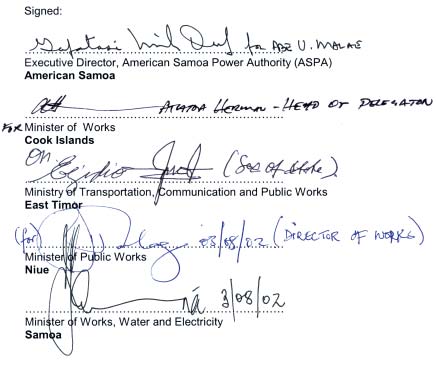 Signed:
for ABE U. MALAE
Executive Director, American Samoa Power Authority (ASPA)
American Samoa
HERMAN - HEAD OF DELEGATION
FOR Minister of Works
Cook Islands
Egidio (Sec of State)
Ministry of Transportation, Communication and Public Works
East Timor
(for) 03/08/02 (DIRECTOR OF WORKS)
Minister of Public Works
Niue
3/08/02
Minister of Works, Water and Electricity
Samoa